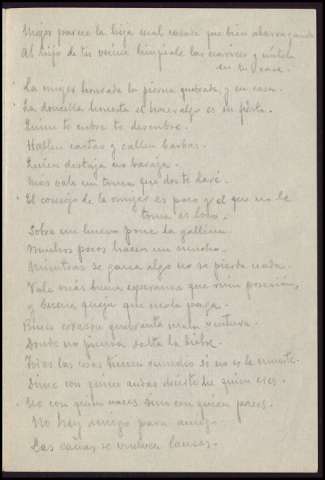 Mejor parece la hija mal casada que bien abarraganada
Al hijo de tu vecino límpiale las narices y métele
en tu casa.
La mujer honrada la pierna quebrada y en casa.
La doncella honesta el hacer algo es su fiesta.
Quien te cubre te descubre.
Hablen cartas y callen barbas.
Quien destaja no baraja.
Mas vale un toma que dos te daré.
El consejo de la mujer es poco y el que no le
toma es loco.
Sobre un huevo pone la gallina.
Muchos pocos hacen un mucho.
Mientras se gana algo no se pierde nada.
Vale más buena esperanza que ruin posesión,
y buena queja que mala paga.
Buen corazón quebranta mala ventura.
Donde no piensa salta la liebre.
Todas las cosas tienen remedio si no es la muerte.
Dime con quien andas decirte he quien eres.
No con quien naces sino con quien paces.
No hay amigo para amigo.
Las cañas se vuelven lanzas.